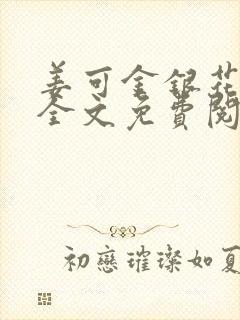 姜可金银花
全文免費閱
初戀璀璨如夏